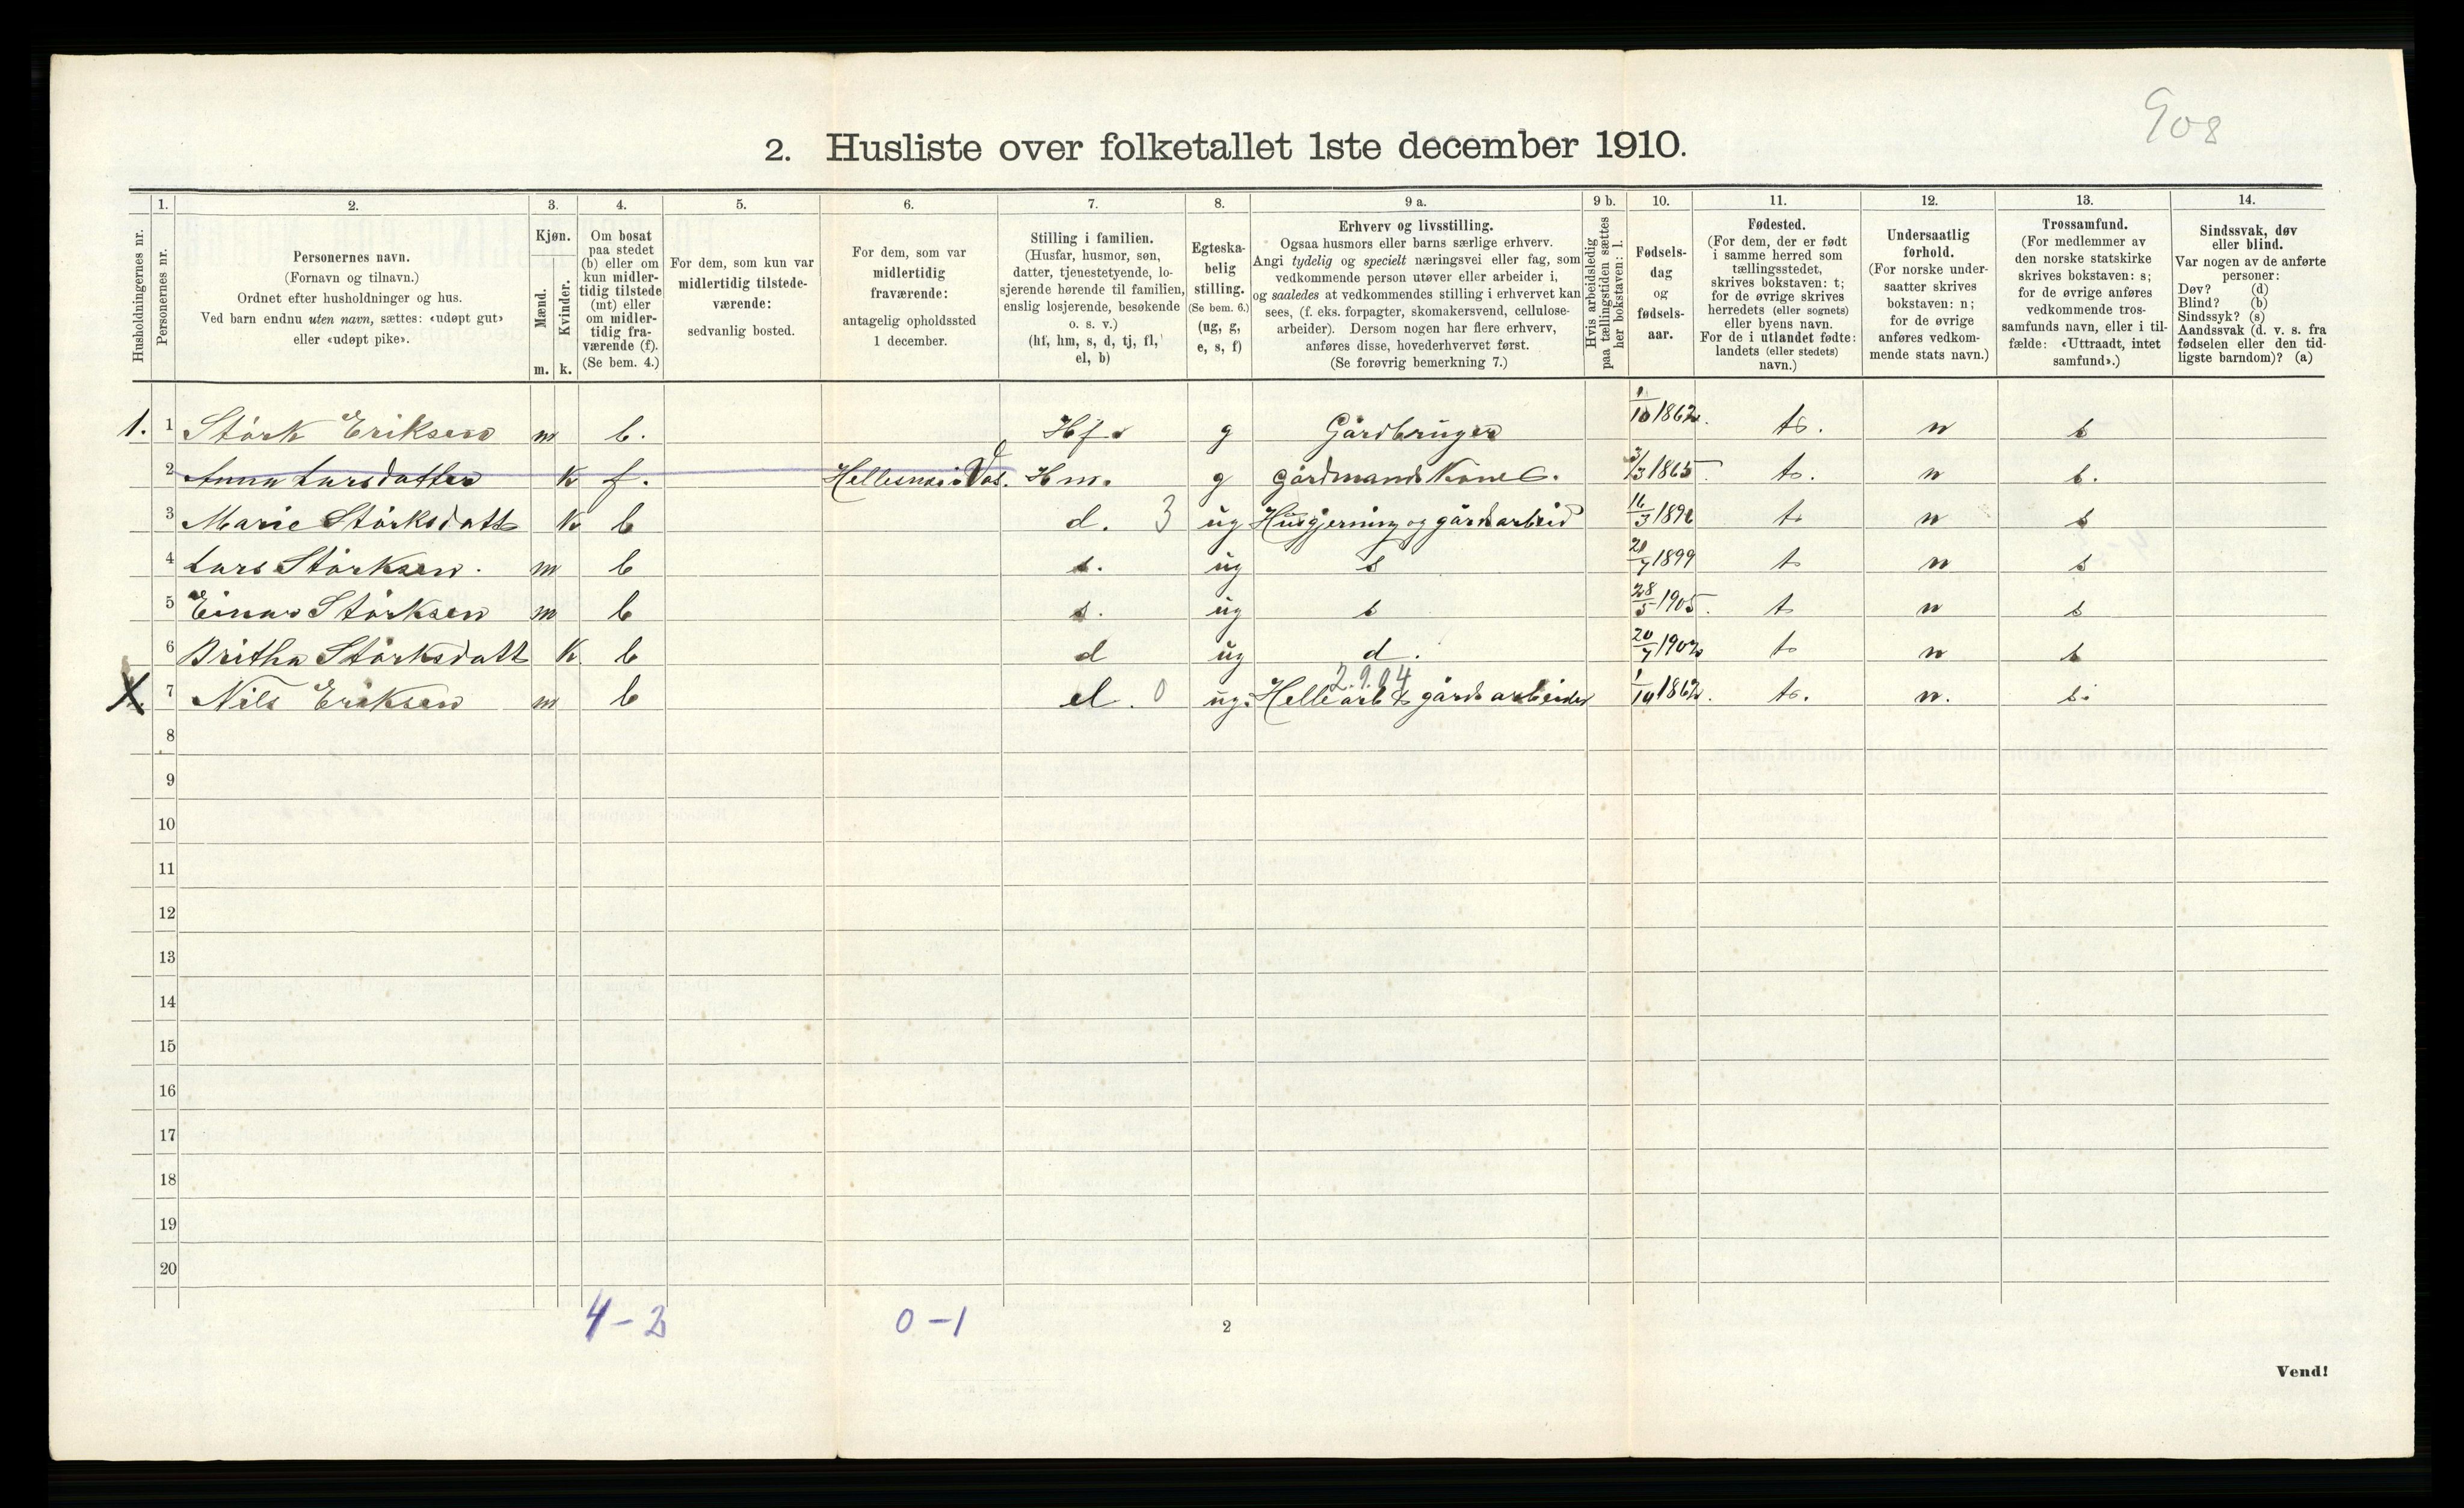 908
2. Husliste over folketallet 1ste december 1910.
Husholdningernes nr.
1. Personernes nr.
2. Personernes navn.
(Fornavn og tilnavn.)
Ordnet efter husholdninger og hus.
Ved barn endnu uten navn, sættes: «udøpt gut»
eller «udøpt pike».
3. Kjøn.
Mænd. Kvinder.
m. k.
4. Om bosat
paa stedet
(b) eller om
kun midler-
tidig tilstede
(mt) eller
om midler-
tidig fra-
værende (f).
(Se bem. 4.)
5. For dem, som kun var
midlertidig tilstede-
værende:
sedvanlig bosted.
6. For dem, som var
midlertidig
fraværende:
antagelig opholdssted
1 december.
7. Stilling i familien.
(Husfar, husmor, søn,
datter, tjenestetyende, lo-
sjerende hørende til familien,
enslig losjerende, besøkende
o. s. v.)
(hf, hm, s, d, tj, fl,
el, b)
8. Egteska-
belig
stilling.
(Se bem. 6.)
(ug, g,
e, s, f)
9 a. Erhverv og livsstilling.
Ogsaa husmors eller barns særlige erhverv.
Angi tydelig og specielt næringsvei eller fag, som
vedkommende person utøver eller arbeider i,
og saaledes at vedkommendes stilling i erhvervet kan
sees, (f. eks. forpagter, skomakersvend, cellulose-
arbeider). Dersom nogen har flere erhverv,
anføres disse, hovederhvervet først.
(Se forøvrig bemerkning 7.)
9 b. Hvis arbeidsledig
paa tællingstiden sættes
her bokstaven: l.
10. Fødsels-
dag
og
fødsels-
aar.
11. Fødested.
(For dem, der er født
i samme herred som
tællingsstedet,
skrives bokstaven: t;
for de øvrige skrives
herredets (eller sognets)
eller byens navn.
For de i utlandet fødte:
landets (eller stedets)
navn.)
12. Undersaatlig
forhold.
(For norske under-
saatter skrives
bokstaven: n;
for de øvrige
anføres vedkom-
mende stats navn.)
13. Trossamfund.
(For medlemmer av
den norske statskirke
skrives bokstaven: s;
for de øvrige anføres
vedkommende tros-
samfunds navn, eller i til-
fælde: «Uttraadt, intet
samfund».)
14. Sindssvak, døv
eller blind.
Var nogen av de anførte
personer:
Døv? (d)
Blind? (b)
Sindssyk? (s)
Aandssvak (d. v. s. fra
fødselen eller den tid-
ligste barndom)? (a)
1. 1 Störk Eriksen m b. Hf. g Gårdbruger 1/10 1862. t. n s
2 Anna Larsdatter k f. Hm. g gårdmands Kone 3/3 1865 t. n s.
3 Marie Störksdatt k b d. 3 ug Husgjerning og gårdsarbeid t. n s
4 Lars Störksen. m b s. ug s 1899 t n s
5 Einar Störksen m b s. ug s 28/5 1905. t n s
6 Britha Störksdatt k. b d ug d. 20/7 1902 t n s
2.9.04
X 7 Nils Eriksen m b el. 0 ug. Hellearb & gårdsarbeider 1/10 1862. t. n. s.
8
9
10
11
12
13
14
15
16
17
18
19
20
4-2 0-1
2
Vend!